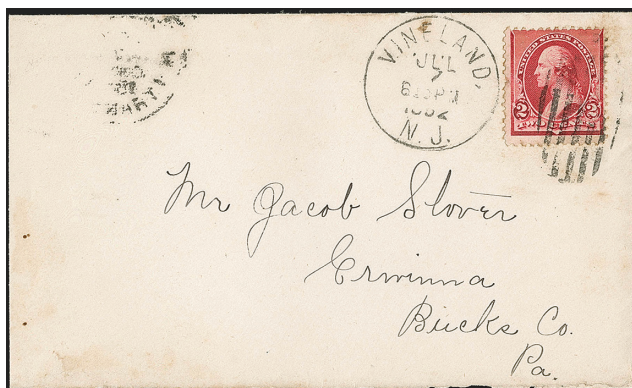 VINELAND,
JUL
7
1892
N.J.
UNITED STATES POSTAGE
2 2
Mr Jacob Slover
Erwinna
Bucks Co.
Pa.